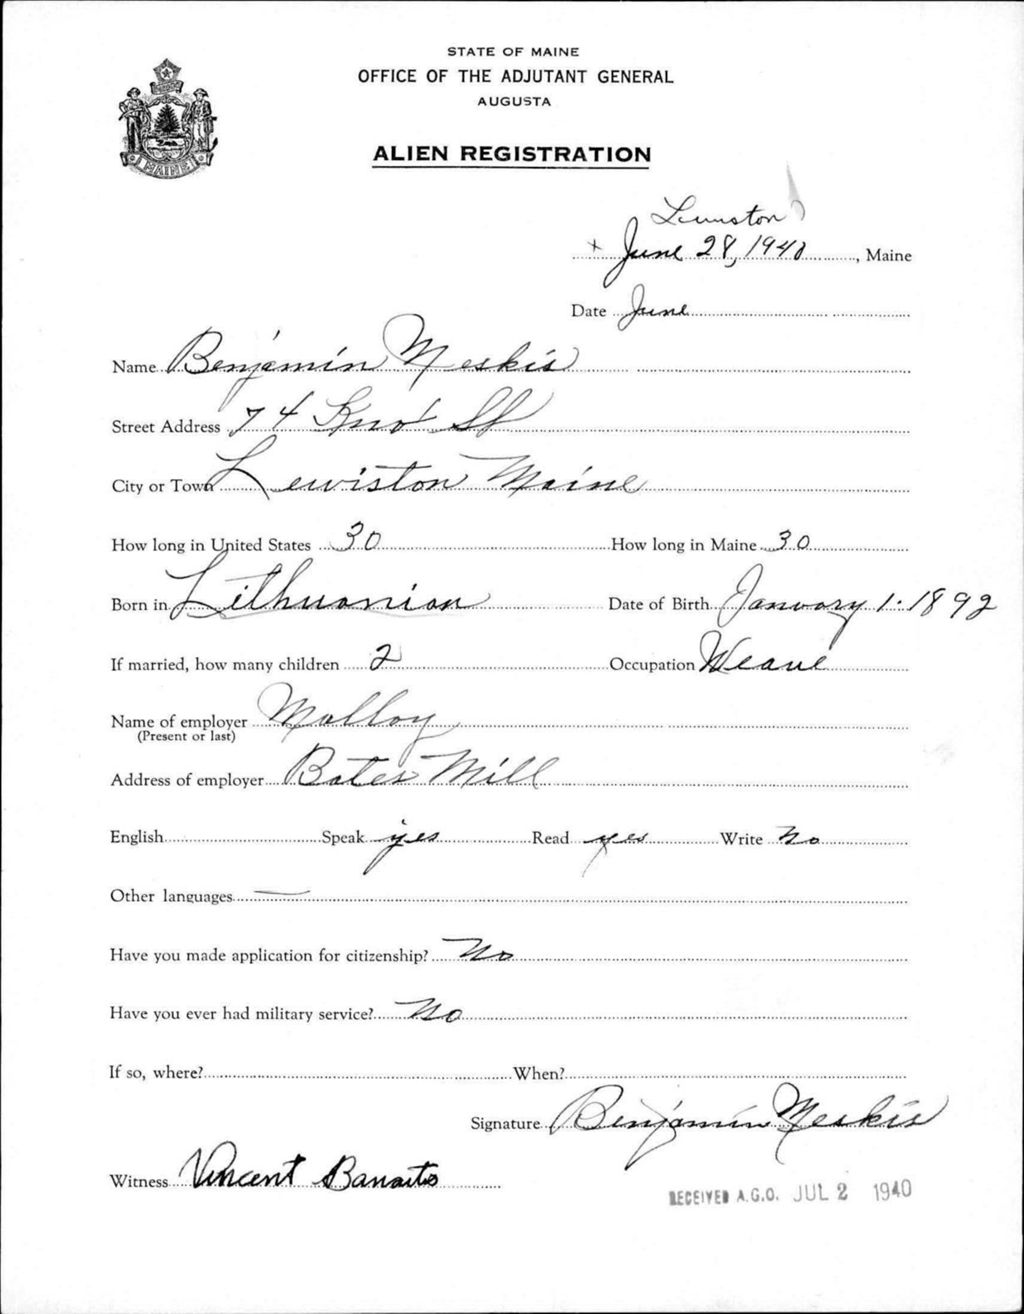 STATE OF MAINE
OFFICE OF THE ADJUTANT GENERAL
AUGUSTA
ALIEN REGISTRATION
MAINE
Lewiston
+ June 28, 1940, Maine
Date June
Name Benjamin Meskis
Street Address 74 St
City or Town Lewiston Maine
How long in United States 30 How long in Maine 30
Born in Lithuanian Date of Birth January 1. 1892
If married, how many children 2 Occupation Weave
Name of employer Malloy
(Present or last)
Address of employer Bates Mill
English Speak yes Read yes Write No
Other languages —
Have you made application for citizenship? No
Have you ever had military service? No
If so, where? When?
Signature Benjamin Meskis
Witness Vincent
RECEIVED A.G.O. JUL 2 1940